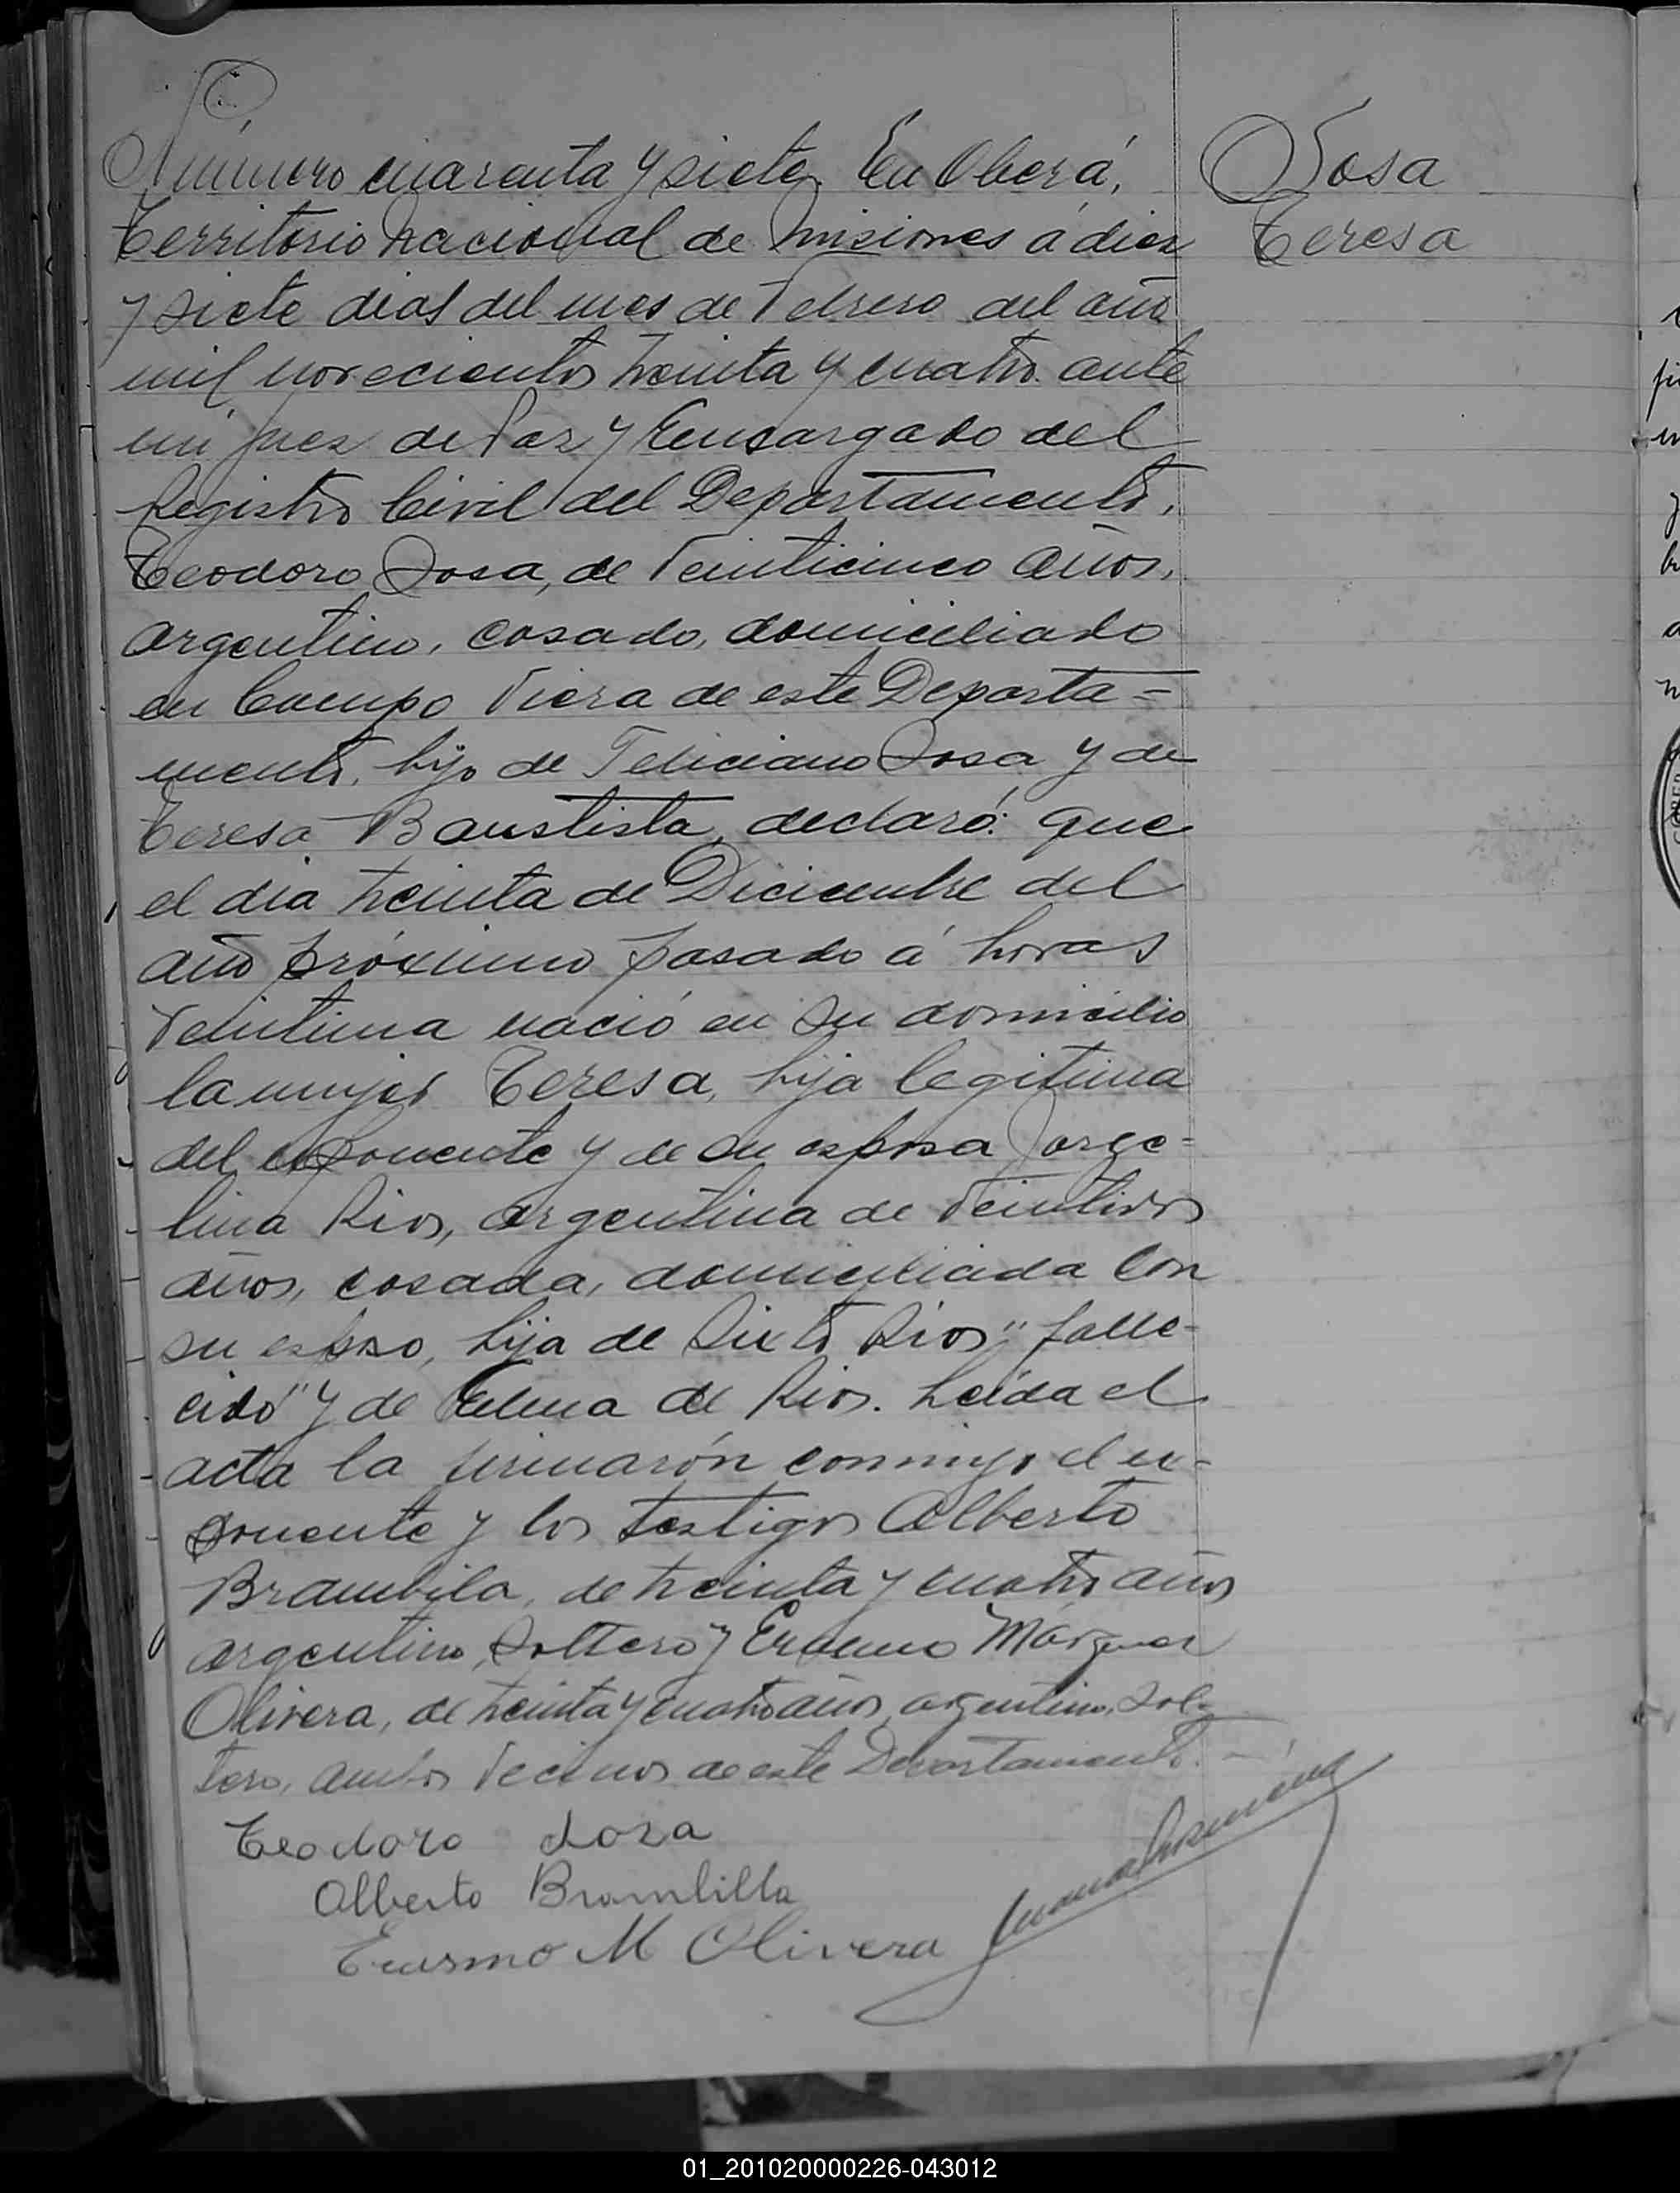 Número cuarenta y siete. En Oberá,
Territorio Nacional de Misiones á diez
y siete dias del mes de Febrero del año
mil novecientos treinta y cuatro. ante
mi Juez de Paz y Encargado del
Registro Civil del Departamento,
Teodoro Sosa, de veinticinco años,
argentino, casado, domiciliado
en Campo Viera de este Departa=
mento, hijo de Feliciano Sosa y de
Teresa Baustista, declaró: que
el dia treinta de Diciembre del
año próximo pasado á horas
veintiuna nació en su domicilio
la mujer Teresa, hija legitima
del exponente y de su esposa Jorge=
lina Rios, argentina de veintidos
años, casada, domiciliada con
su esposo, hija de Sixto Rios "falle-
cido" y de de Rios. Leida el
acta la firmarón conmigo el ex-
ponente y los testigos Alberto
Brambila, de treinta y cuatro años
argentino, soltero y Erasmo Márquez
Olivera, de treinta y cuatro años, argentino, sol-
tero, ambos vecinos de este Departamento. —
Teodoro Sosa
Alberto Brambilla
Erasmo M Olivera
Sosa
Teresa
01_201020000226-043012